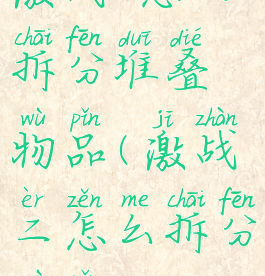 chāi fēn duī dié
拆分堆叠
wù pǐn jī zhàn
物品(激战
èr zěn me chāi fēn
二怎么拆分